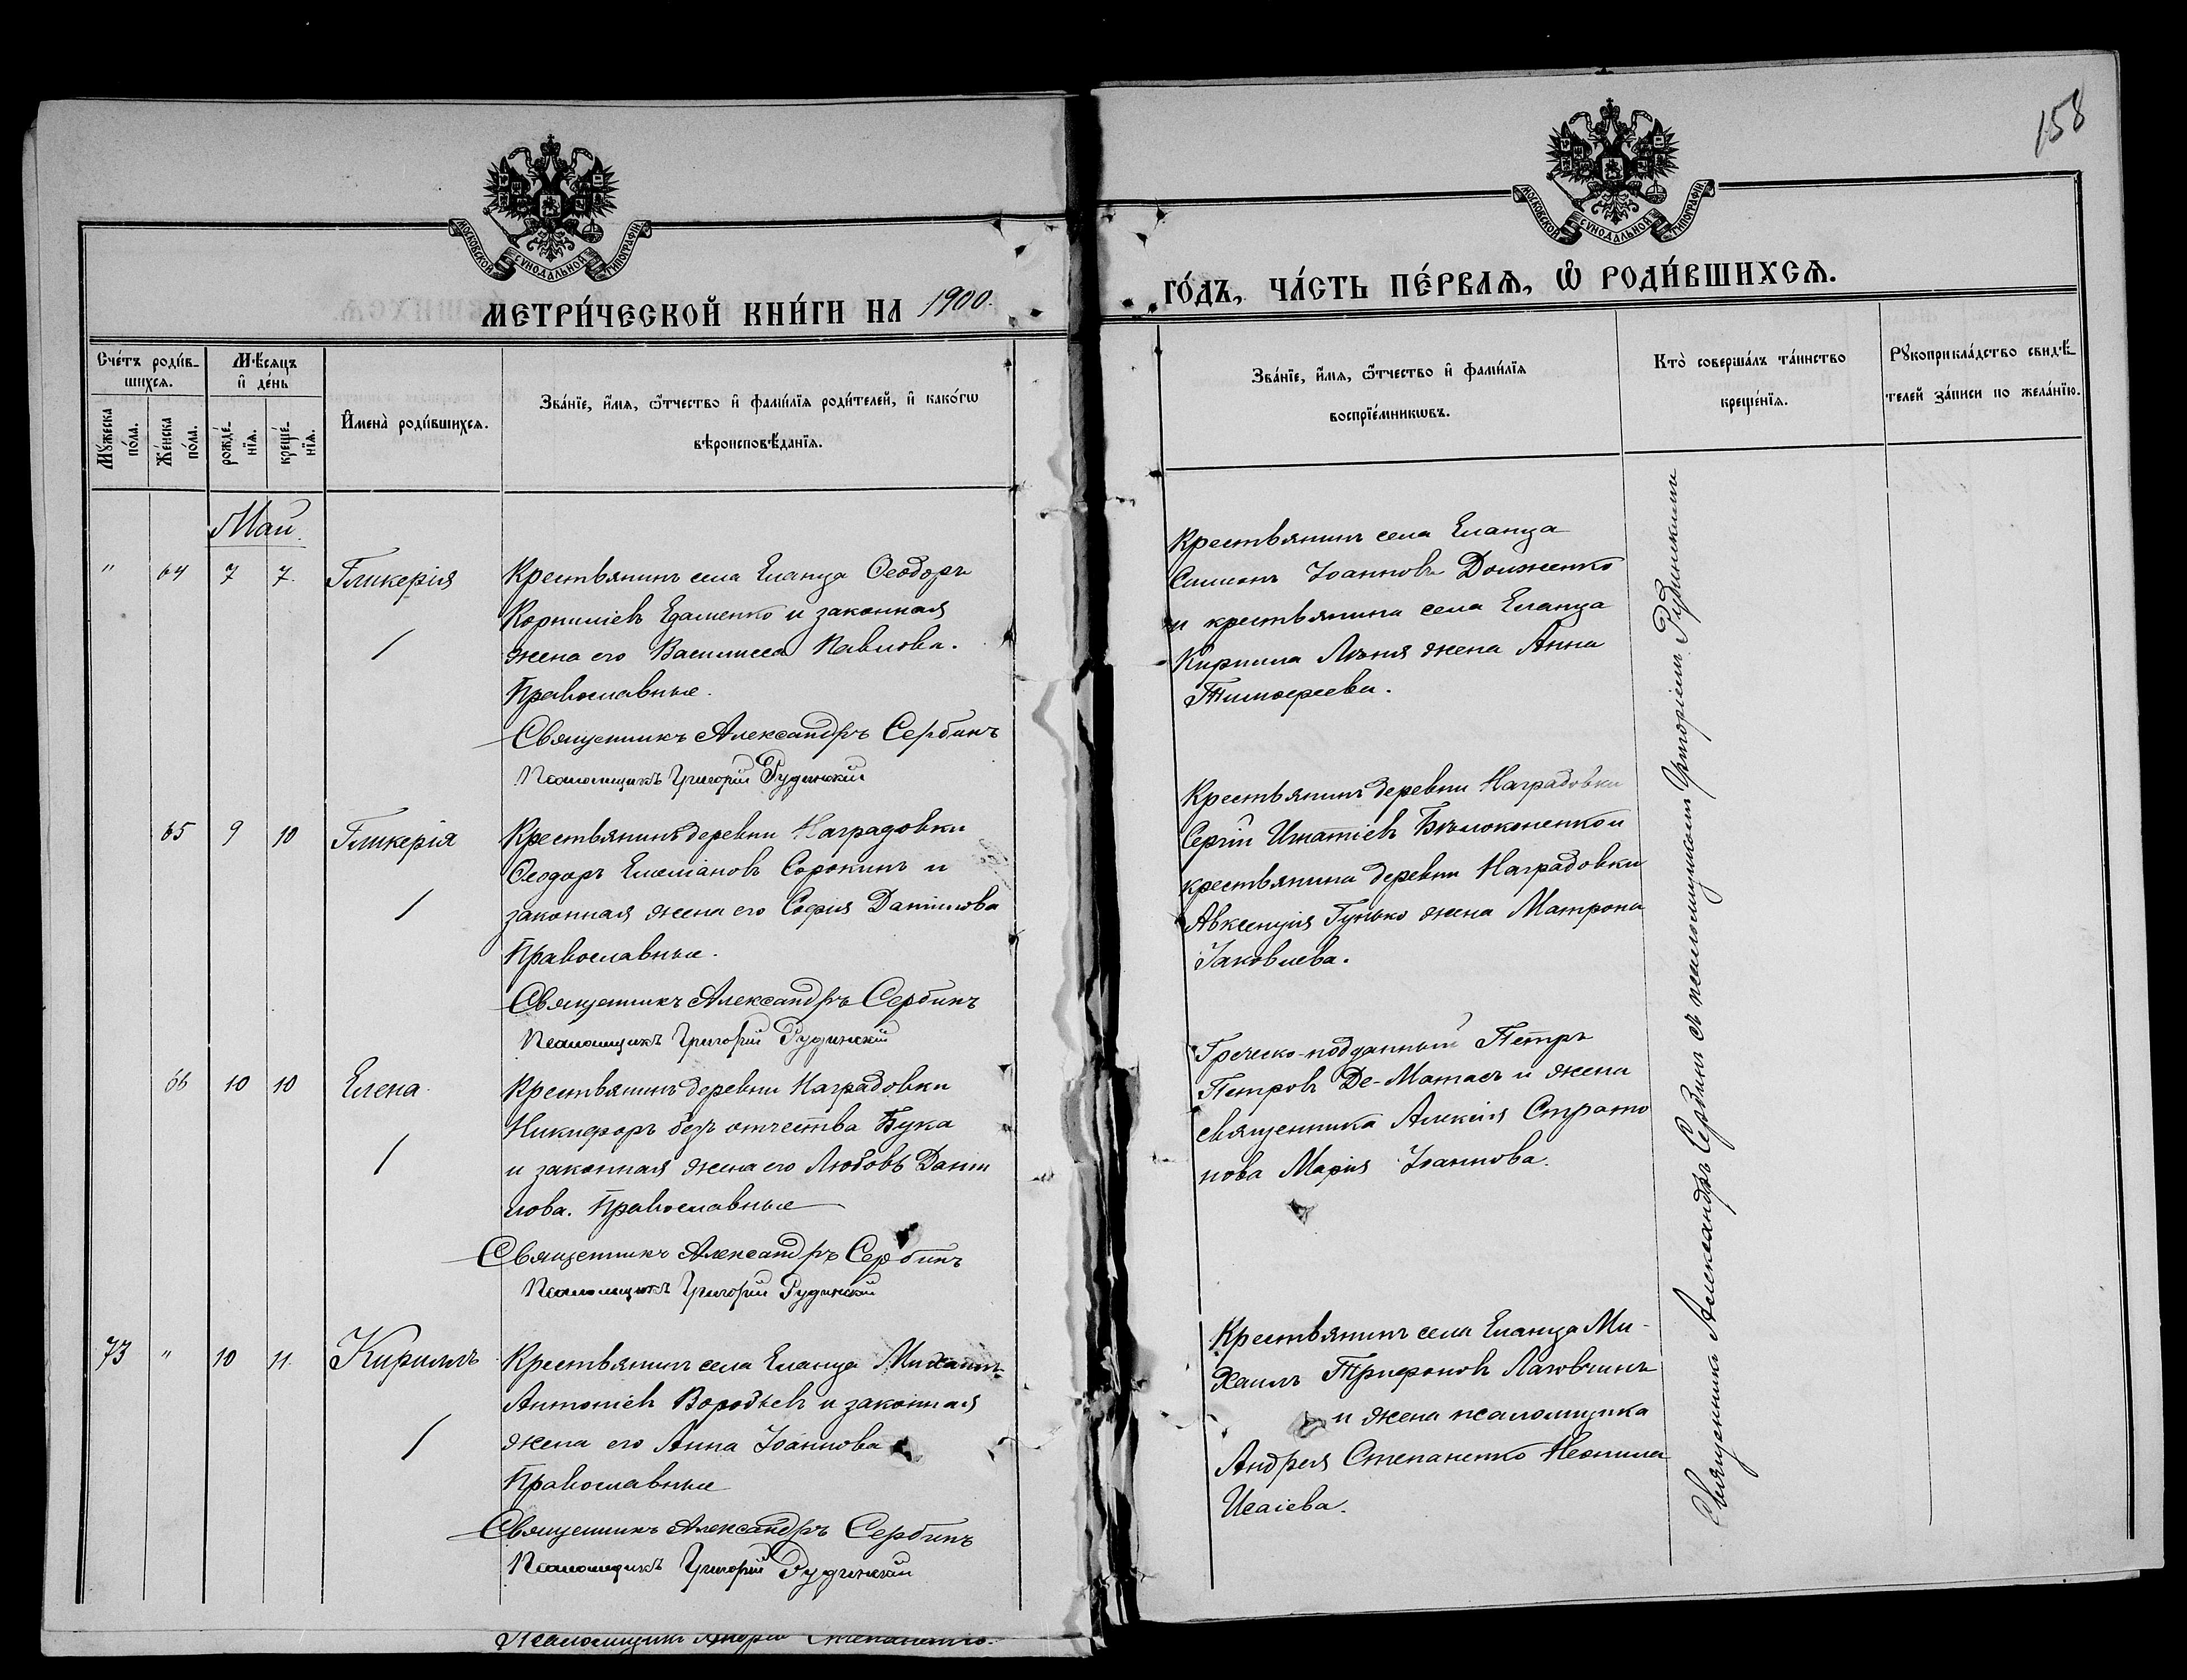 158
МОСКОВСКОЙ СѴНОДАЛЬНОЙ ТИПОГРАФІИ
МОСКОВСКОЙ СѴНОДАЛЬНОЙ ТИПОГРАФІИ
МЕТРИ́ЧЕСКОЙ КНИ́ГИ НА 1900.
ГО́ДЪ, ЧА́СТЬ ПЕ́РВАѦ, Ѡ҆ РОДИ́ВШИХСѦ.
Сче́тъ роди́в-
шихсѧ.
Мѣ́сѧцъ
и҆ де́нь
Мꙋ́жеска
по́ла.
Же́нска
по́ла.
рожде́-
нїѧ.
креще́-
нїѧ.
И҆мена̀ роди́вшихсѧ.
Зва́нїе, и҆́мѧ, ѻ҆́тчество и҆ фами́лїѧ роди́телей, и҆ како́гѡ
вѣроисповѣ́данїѧ.
Зва́нїе, и҆́мѧ, ѻ҆́тчество и҆ фами́лїѧ
воспрїе́мникѡвъ.
Кто̀ соверша́лъ та́инство
креще́нїѧ.
Рꙋкоприкла́дство свидѣ́-
телей за́писи по жела́нїю.
Май.
" 64 7 7. Гликерія
Крестьянинъ села Еланца Ѳеодоръ
Корниліевъ Едаменко и законная
жена его Василисса Павлова.
Православные.
Священникъ Александръ Сербинъ
Псаломщикъ Григорій Рудинскій
Крестьянинъ села Еланца
Симеонъ Іоанновъ Долженко
и крестьянина села Еланца
Кирилла жена Анна
Тимоѳеева.
65 9 10 Гликерія
Крестьянинъ деревни Наградовки
Ѳеодоръ Емеліановъ Сорокинъ и
законная жена его Софія Даніилова
Православные.
Священникъ Александръ Сербинъ
Псаломщикъ Григорій Рудинскій
Крестьянинъ деревни Наградовки
Сергій Игнатіевъ Бѣлоконенко и
крестьянина деревни Наградовки
Авксентія Гунько жена Матрона
Іаковлева.
66 10 10 Елена
Крестьянинъ деревни Наградовки
Никифоръ безъ отчества Бука
и законная жена его Любовь Даніи
лова. Православные
Священникъ Александръ Сербинъ
Псаломщикъ Григорій Рудинскій
Греческо-подданный Петръ
Петровъ Де-Матасъ и жена
священника Алексія Страто
нова Марія Іоаннова.
73 " 10 11. Кириллъ
Крестьянинъ села Еланца Михаилъ
Антоніевъ Воробьевъ и законная
жена его Анна Іоаннова
Православные
Священникъ Александръ Сербинъ
Псаломщикъ Григорій Рудинскій
Крестьянинъ села Еланца Ми-
хаилъ Трифоновъ Лаговчинъ
и жена псаломщика
Андрея Степаненко Неонила
Исаіева.
Священникъ Александръ Сербинъ съ псаломщикомъ Григоріемъ Рудинскимъ
Псаломщикъ Андрей Степаненко.